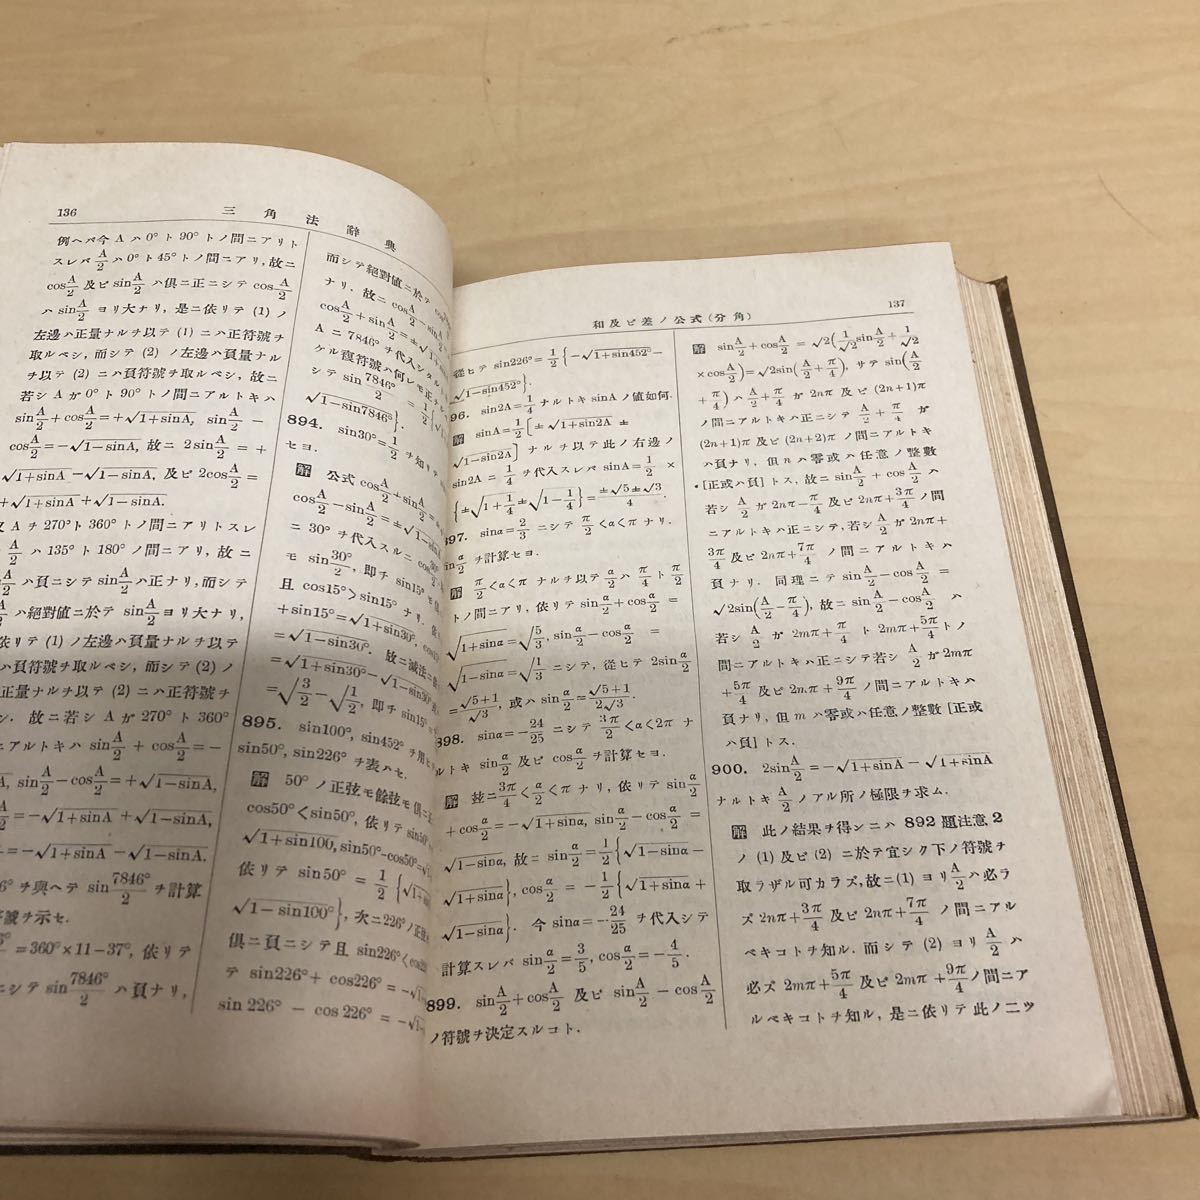 136
三角法辭典
例ヘバ今Aハ0°ト90°トノ間ニアリト
スレバA/2ハ0°ト45°トノ間ニアリ,故ニ
cosA/2及ビsinA/2ハ俱ニ正ニシテcosA/2
ハsinA/2ヨリ大ナリ,是ニ依リテ(1)ノ
左邊ハ正量ナルヲ以テ(1)ニハ正符號ヲ
取ルベシ,而シテ(2)ノ左邊ハ負量ナル
ヲ以テ(2)ニハ負符號ヲ取ルベシ,故ニ
若シAガ0°ト90°トノ間ニアルトキハ
sinA/2+cosA/2=+√1+sinA, sinA/2−
cosA/2=−√1−sinA,故ニ2sinA/2=+
√1+sinA−√1−sinA,及ビ2cosA/2=
+√1+sinA+√1−sinA.
Aヲ270°ト360°トノ間ニアリトスレ
A/2ハ135°ト180°ノ間ニアリ,故ニ
A/2ハ負ニシテsinA/2ハ正ナリ,而シテ
ハ絕對値ニ於テsinA/2ヨリ大ナリ,
依リテ(1)ノ左邊ハ負量ナルヲ以テ
ハ負符號ヲ取ルベシ,而シテ(2)ノ
正量ナルヲ以テ(2)ニハ正符號ヲ
シ.故ニ若シAガ270°ト360°
ニアルトキハsinA/2+cosA/2=−
sinA/2−cosA/2=+√1−sinA,
A/2=−√1+sinA+√1−sinA,
=−√1+sinA−√1−sinA.
6°ヲ與ヘテsin7846°/2ヲ計算
符號ヲ示セ.
=360°×11−37°,依リテ
ニシテsin7846°/2ハ負ナリ,
而シテ絕對値ニ於テ
ナリ.故ニcosA/2−sinA/2
cosA/2+sinA/2=±√1+
Aニ7846°ヲ代入シタル
ケル複符號ハ何レモ正
シテsin7846°/2=1/2{√1
√1−sin7846°}.
894. sin30°=1/2ヲ知リテ
セヨ.
解 公式cosA/2+sinA/2=±
cosA/2−sinA/2=±√1−sinA
=30°ヲ代入スルニcos30°/2
モsin30°/2,卽チsin15°モ
且cos15°>sin15°ナリ.
+sin15°=√1+sin30°,
=√1−sin30°.故ニ減法ニ
=√1+sin30°−√1−sin30°
=√3/2−√1/2,卽チsin15°=
895. sin100°, sin452°ヲ用ヒ
sin50°, sin226°ヲ表ハセ.
解 50°ノ正弦モ餘弦モ俱ニ
cos50°<sin50°,依リテsin50°
√1+sin100, sin50°−cos50°=√1
依リテsin50°=1/2{√1+
√1−sin100°},次ニ226°ノ正弦
俱ニ負ニシテ且sin226°<cos
テsin226°+cos226°=−√1
sin226°−cos226°=−√1
137
和及ビ差ノ公式(分角)
從ヒテsin226°=1/2{−√1+sin452°−
√1−sin452°}.
96. sin2A=1/4ナルトキsinAノ値如何.
解 sinA=1/2[±√1+sin2A±
√1−sin2A]ナルヲ以テ此ノ右邊ノ
sin2A=1/4ヲ代入スレバsinA=1/2×
{±√1+1/4±√1−1/4}=±√5±√3/4.
897. sinα=2/3ニシテπ/2<α<πナリ.
sinα/2ヲ計算セヨ.
解 π/2<α<πナルヲ以テα/2ハπ/4トπ/2
トノ間ニアリ,依リテsinα/2+cosα/2=
√1+sinα=√5/3, sinα/2−cosα/2=
√1−sinα=√1/3ニシテ,從ヒテ2sinα/2
=√5+1/√3,或ハsinα/2=√5+1/2√3.
898. sinα=−24/25ニシテ3π/2<α<2πナ
ルトキsinα/2及ビcosα/2ヲ計算セヨ.
解 玆ニ3π/4<α/2<πナリ,依リテsinα/2
+cosα/2=−√1+sinα, sinα/2−cosα/2=
√1−sinα,故ニsinα/2=1/2{√1−sinα−
√1+sinα}, cosα/2=−1/2{√1+sinα+
√1−sinα}.今sinα=−24/25ヲ代入シテ
計算スレバsinα/2=3/5, cosα/2=−4/5.
899. sinA/2+cosA/2及ビsinA/2−cosA/2
ノ符號ヲ決定スルコト.
解 sinA/2+cosA/2=√2(1/√2 sinA/2+1/√2
×cosA/2)=√2sin(A/2+π/4),サテsin(A/2
+π/4)ハA/2+π/4ガ2nπ及ビ(2n+1)π
ノ間ニアルトキハ正ニシテA/2+π/4ガ
(2n+1)π及ビ(2n+2)πノ間ニアルトキ
ハ負ナリ,但nハ零或ハ任意ノ整數
[正或ハ負]トス,故ニsinA/2+cosA/2ハ
若シA/2ガ2nπ−π/4及ビ2nπ+3π/4ノ間
ニアルトキハ正ニシテ,若シA/2ガ2nπ+
3π/4及ビ2nπ+7π/4ノ間ニアルトキハ
負ナリ.同理ニテsinA/2−cosA/2=
√2sin(A/2−π/4),故ニsinA/2−cosA/2ハ
若シA/2ガ2mπ+π/4ト2mπ+5π/4トノ
間ニアルトキハ正ニシテ若シA/2ガ2mπ
+5π/4及ビ2mπ+9π/4ノ間ニアルトキハ
負ナリ,但mハ零或ハ任意ノ整數[正或
ハ負]トス.
900. 2sinA/2=−√1+sinA−√1+sinA
ナルトキA/2ノアル所ノ極限ヲ求ム.
解 此ノ結果ヲ得ンニハ892題注意2
ノ(1)及ビ(2)ニ於テ宜シク下ノ符號ヲ
取ラザル可カラズ,故ニ(1)ヨリA/2ハ必ラ
ズ2nπ+3π/4及ビ2nπ+7π/4ノ間ニアル
ベキコトヲ知ル.而シテ(2)ヨリA/2ハ
必ズ2mπ+5π/4及ビ2mπ+9π/4ノ間ニア
ルベキコトヲ知ル,是ニ依リテ此ノ二ツ